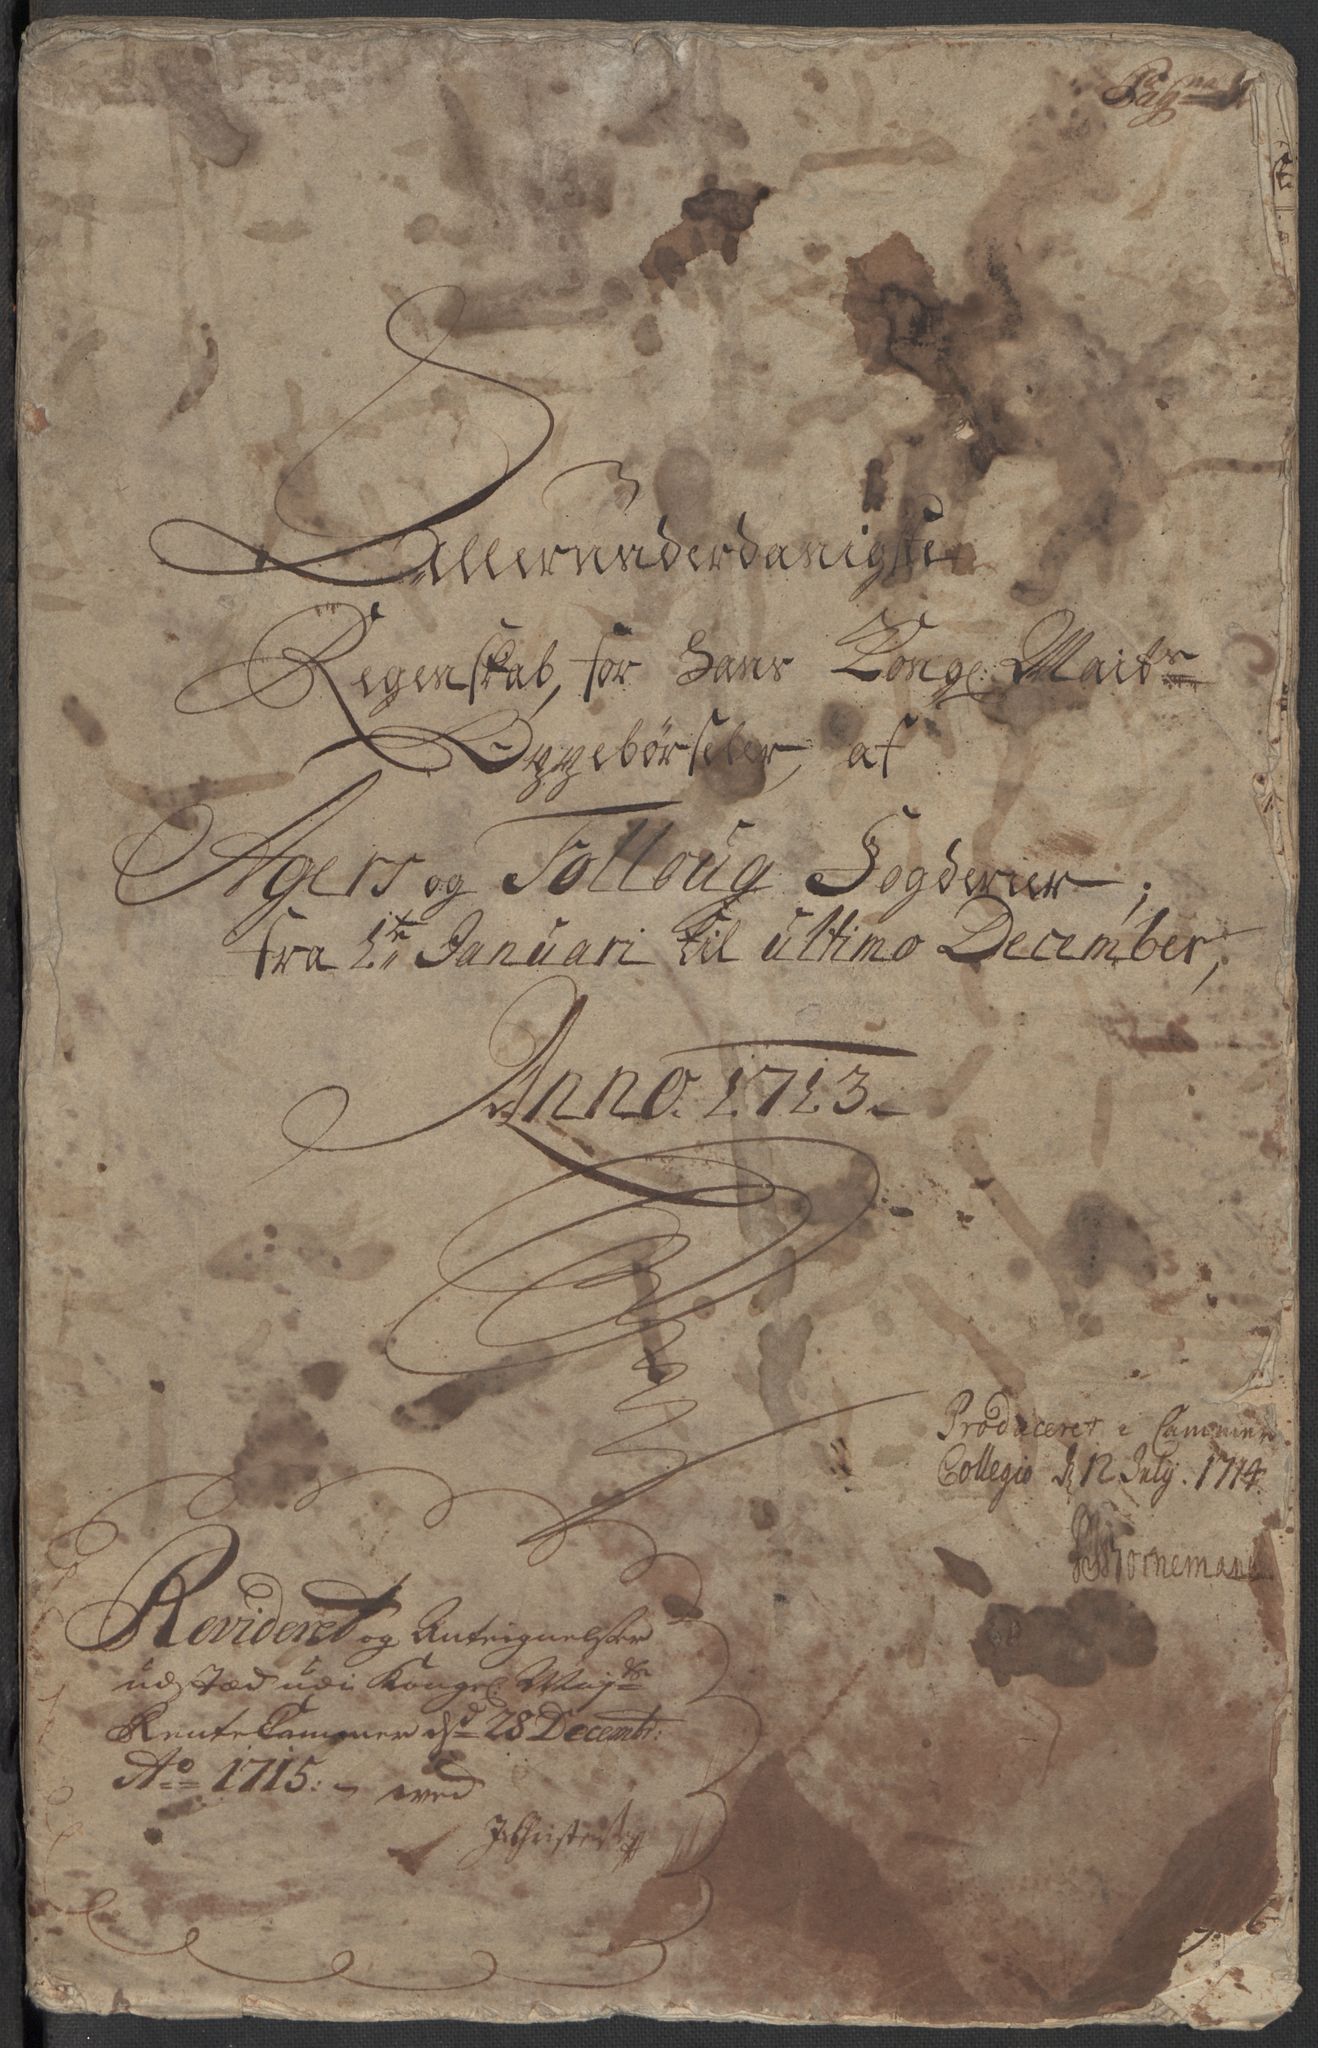 Pagna 1
Allerunderdanigste
Regenskab, for Hans Kongl: Maits
Oppebørseler, af
Agers og Folloug Fogderier,
fra 1te Januari til ultimo December,
Anno. 1713.
Produceret i Cammer
Collegio d 12 July. 1714
Bornemann
Revideret og Antegnelser
udstæd udi Kongl: Majts
Rente Cammer dend 28 Decembr:
Ao 1715: ved